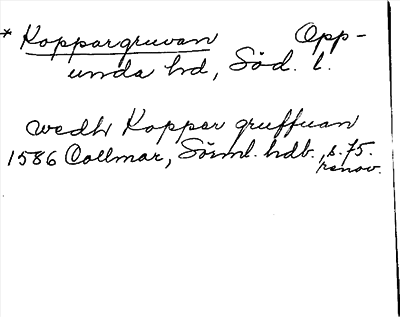 * Koppargruvan Opp-
unda hd, Söd. l.
wedh Koppar gruffuan
1586 Collmar, Sörml. hdb., s. 75.
renov.